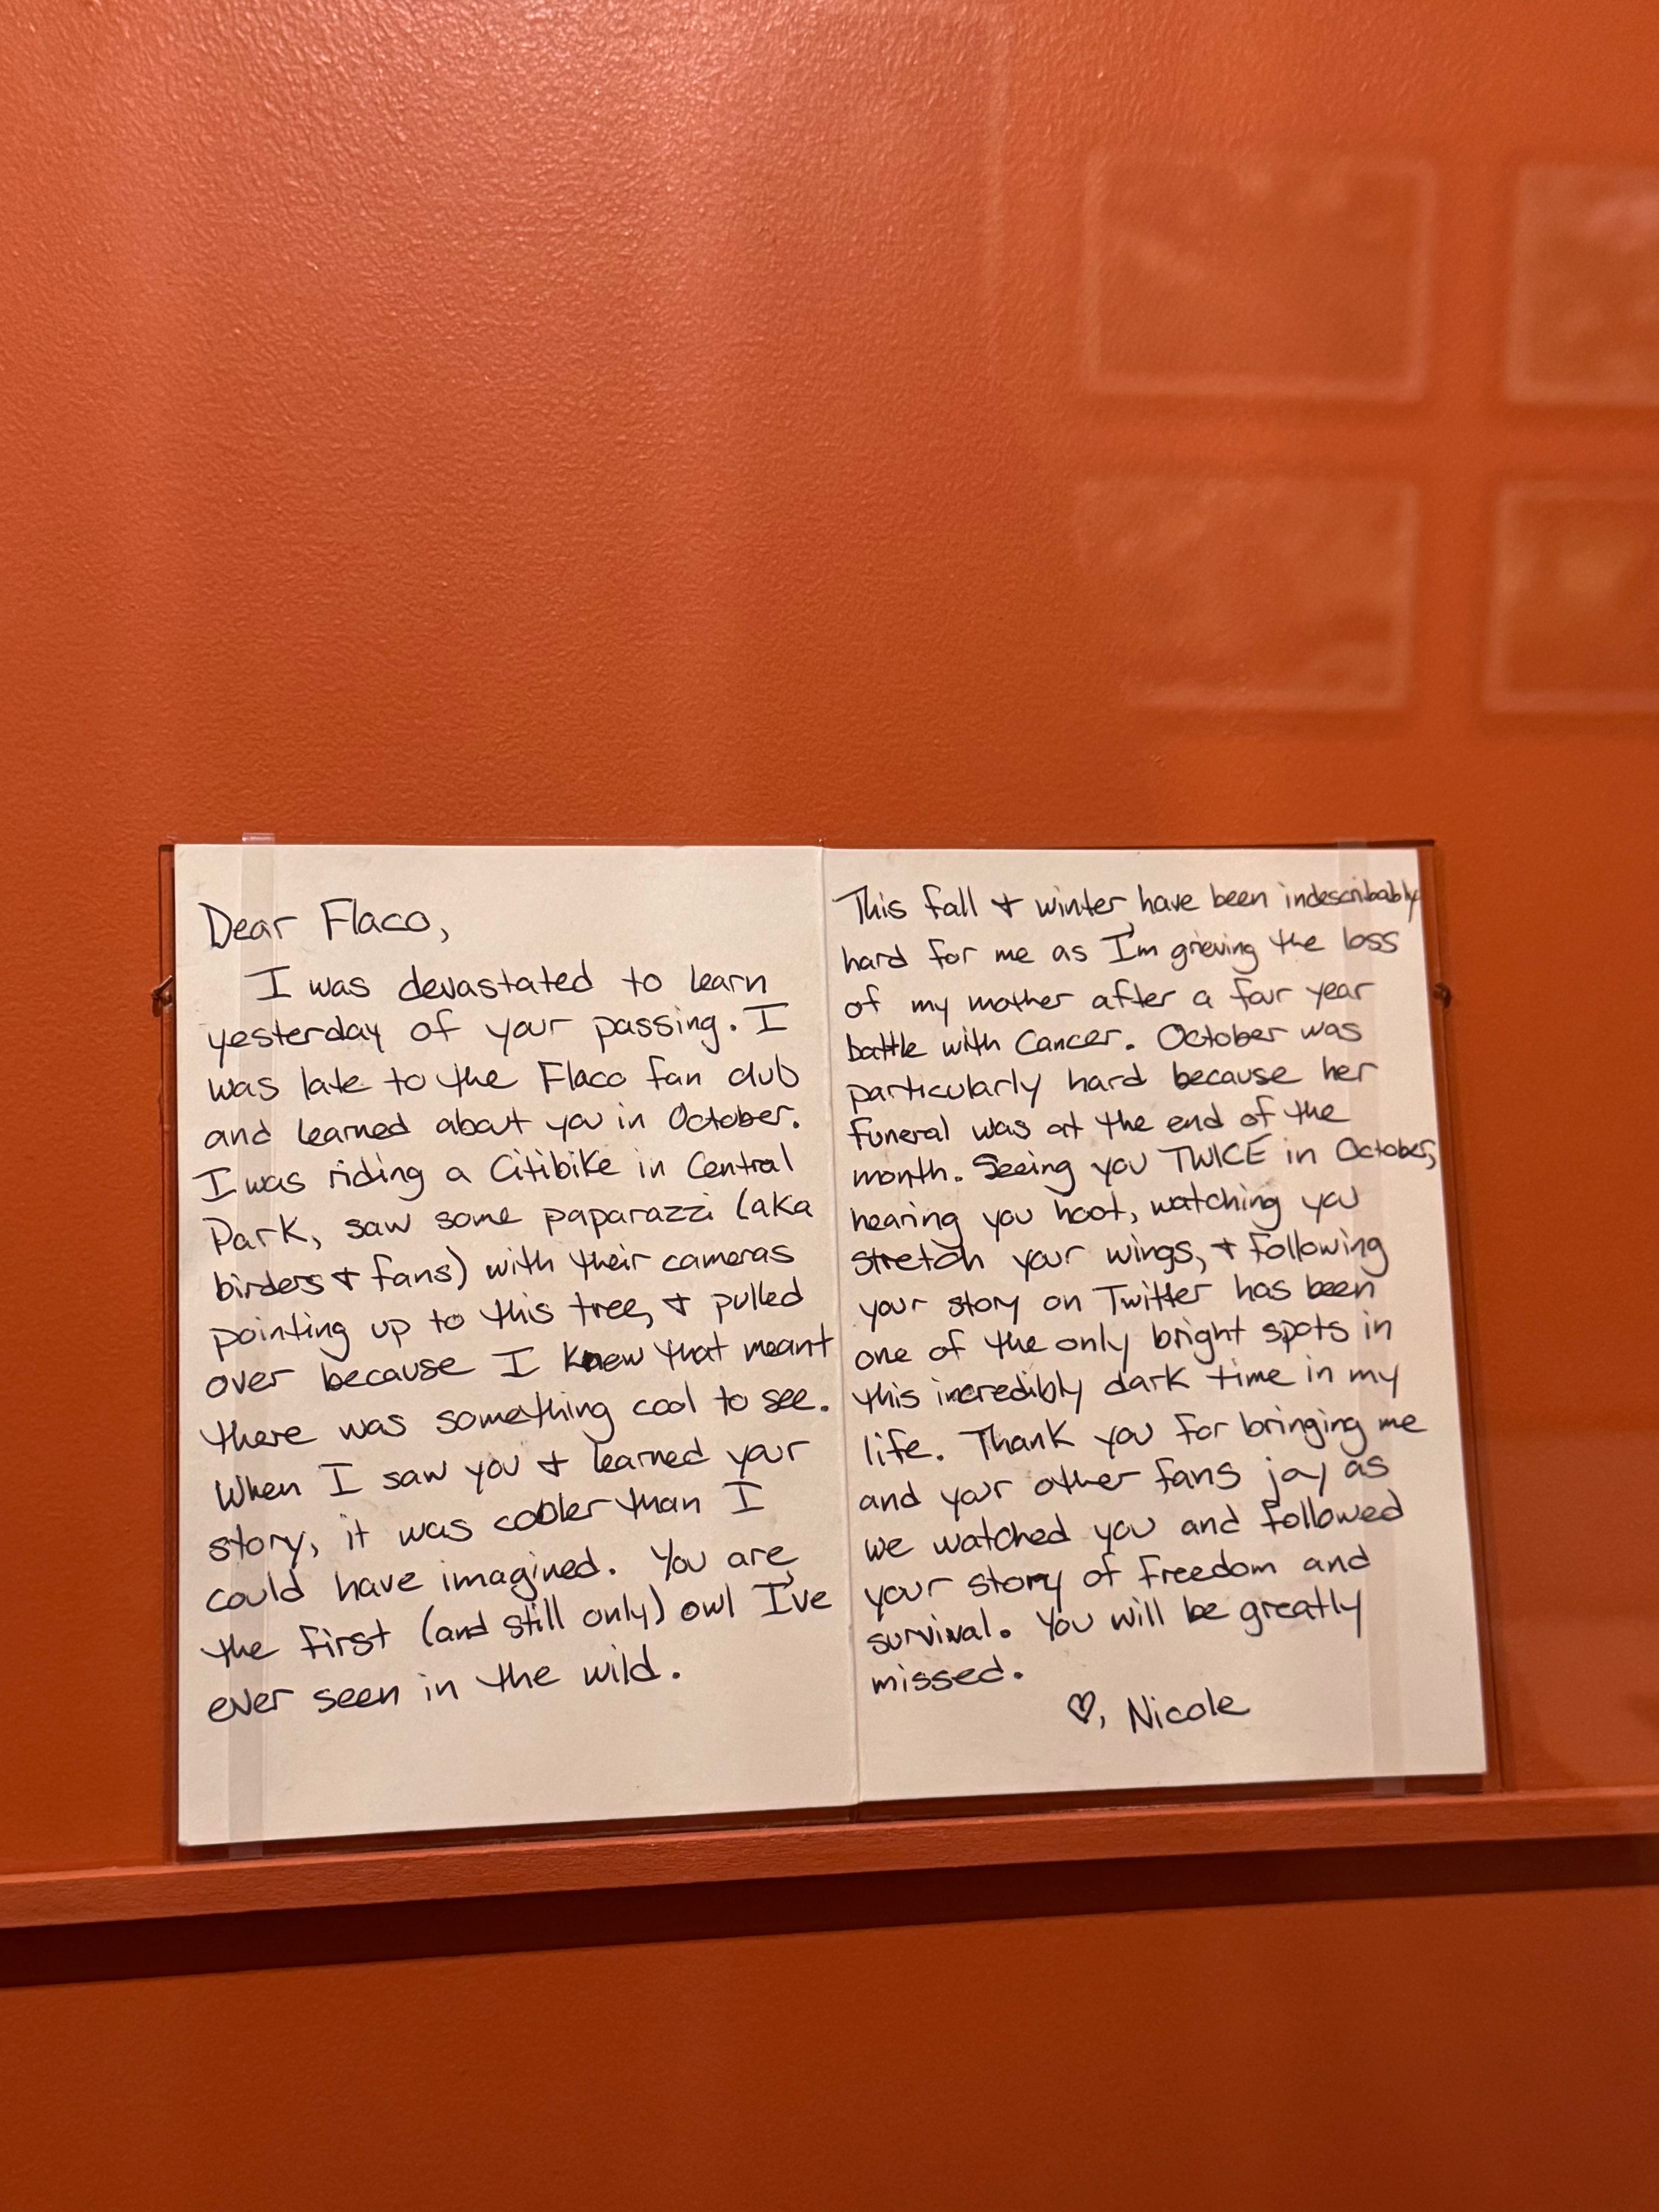 Dear Flaco,
I was devastated to learn
yesterday of your passing. I
was late to the Flaco fan club
and learned about you in October.
I was riding a Citibike in Central
Park, saw some paparazzi (aka
birders & fans) with their cameras
pointing up to this tree, & pulled
over because I knew that meant
there was something cool to see.
When I saw you & learned your
story, it was cooler than I
could have imagined. You are
the first (and still only) owl I've
ever seen in the wild.
This fall & winter have been indescribably
hard for me as I'm grieving the loss
of my mother after a four year
battle with Cancer. October was
particularly hard because her
funeral was at the end of the
month. Seeing you TWICE in October,
hearing you hoot, watching you
stretch your wings, & following
your story on Twitter has been
one of the only bright spots in
this incredibly dark time in my
life. Thank you for bringing me
and your other fans joy as
we watched you and followed
your story of freedom and
survival. You will be greatly
missed.
♡, Nicole